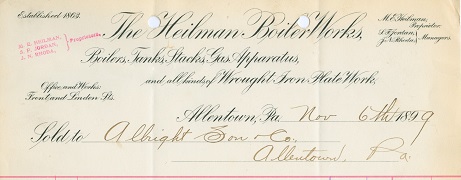 Established 1864.
The Heilman Boiler Works,
M.E. Heilman,
Proprietor.
S.F. Jordan,
J.N. Rhoda,
Managers.
M. E. HEILMAN,
S. F. JORDAN,
J. N. RHODA,
Proprietors.
Boilers, Tanks, Stacks, Gas Apparatus,
and all kinds of Wrought Iron Plate Work,
Office and Works:
Front and Linden Sts.
Allentown, Pa. Nov 6th 1899
Sold to Albright Son & Co.
Allentown. Pa.